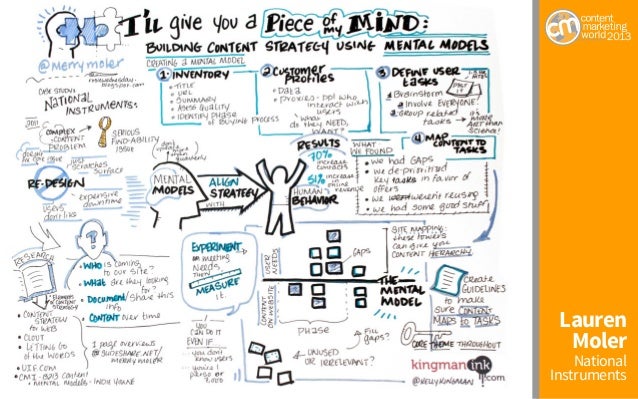 I'll give you a Piece of my MIND:
BUILDING CONTENT STRATEGY USING MENTAL MODELS
@merrymoler
CASE STUDY:
NATIONAL
INSTRUMENTS:
2011
COMPLEX
CONTENT
PROBLEM
SERIOUS
FIND-ABILITY
ISSUE
just
scratches
surface
RE-DESIGN
expensive
downtime
users
don't like
CREATING A MENTAL MODEL
1. INVENTORY
• TITLE
• URL
• SUMMARY
• ASSESS QUALITY
• IDENTIFY PHASE
OF BUYING PROCESS
2 CUSTOMER
PROFILES
• DATA
• PROXIES - ppl who
interact with
users
what
do they NEED,
WANT?
3 DEFINE USER
tasks
1 Brainstorm
2 Involve EVERYONE!
3 Group related
tasks
POST IT
more
ART than
Science!
4 MAP
CONTENT TO
TASKS
MENTAL
MODELS
ALIGN
STRATEGY
WITH
HUMAN
BEHAVIOR
RESULTS
70%
increase
contacts
51% increase
in
online
revenue
WHAT
WE FOUND
• we had GAPS
• we de-prioritized
key tasks in favor of
offers
• we weren't reusing
• we had some good stuff
RESEARCH
ELEMENTS
OF CONTENT
STRATEGY
• CONTENT
STRATEGY
for WEB
• CLOUT
• LETTING GO
of the WORDS
• UIE.COM
• CMI - B2B Content
• MENTAL MODELS - INDI YOUNG
• WHO is coming
to our site?
• What are they looking
for?
• Document/Share this
info
• CONTENT over time
1 page overviews
@ SLIDESHARE.NET/
MERRYMOLER
EXPERIMENT
on meeting
Needs,
THEN
MEASURE
it.
YOU
CAN DO IT
EVEN IF
- you don't
know users
- you're 1
person or
7,000
USER
NEEDS
CONTENT
ON WEBSITE
GAPS
THE
MENTAL
MODEL
PHASE
Fill
gaps?
UNUSED
OR IRRELEVANT?
SITE MAPPING:
these towers
can give you
CONTENT HIERARCHY
Create
GUIDELINES
to make
sure CONTENT
MAPS to TASKS
CORE THEME THROUGHOUT
kingmanink
.com
@KELLYKINGMAN
cm
content
marketing
world2013
Lauren
Moler
National
Instruments